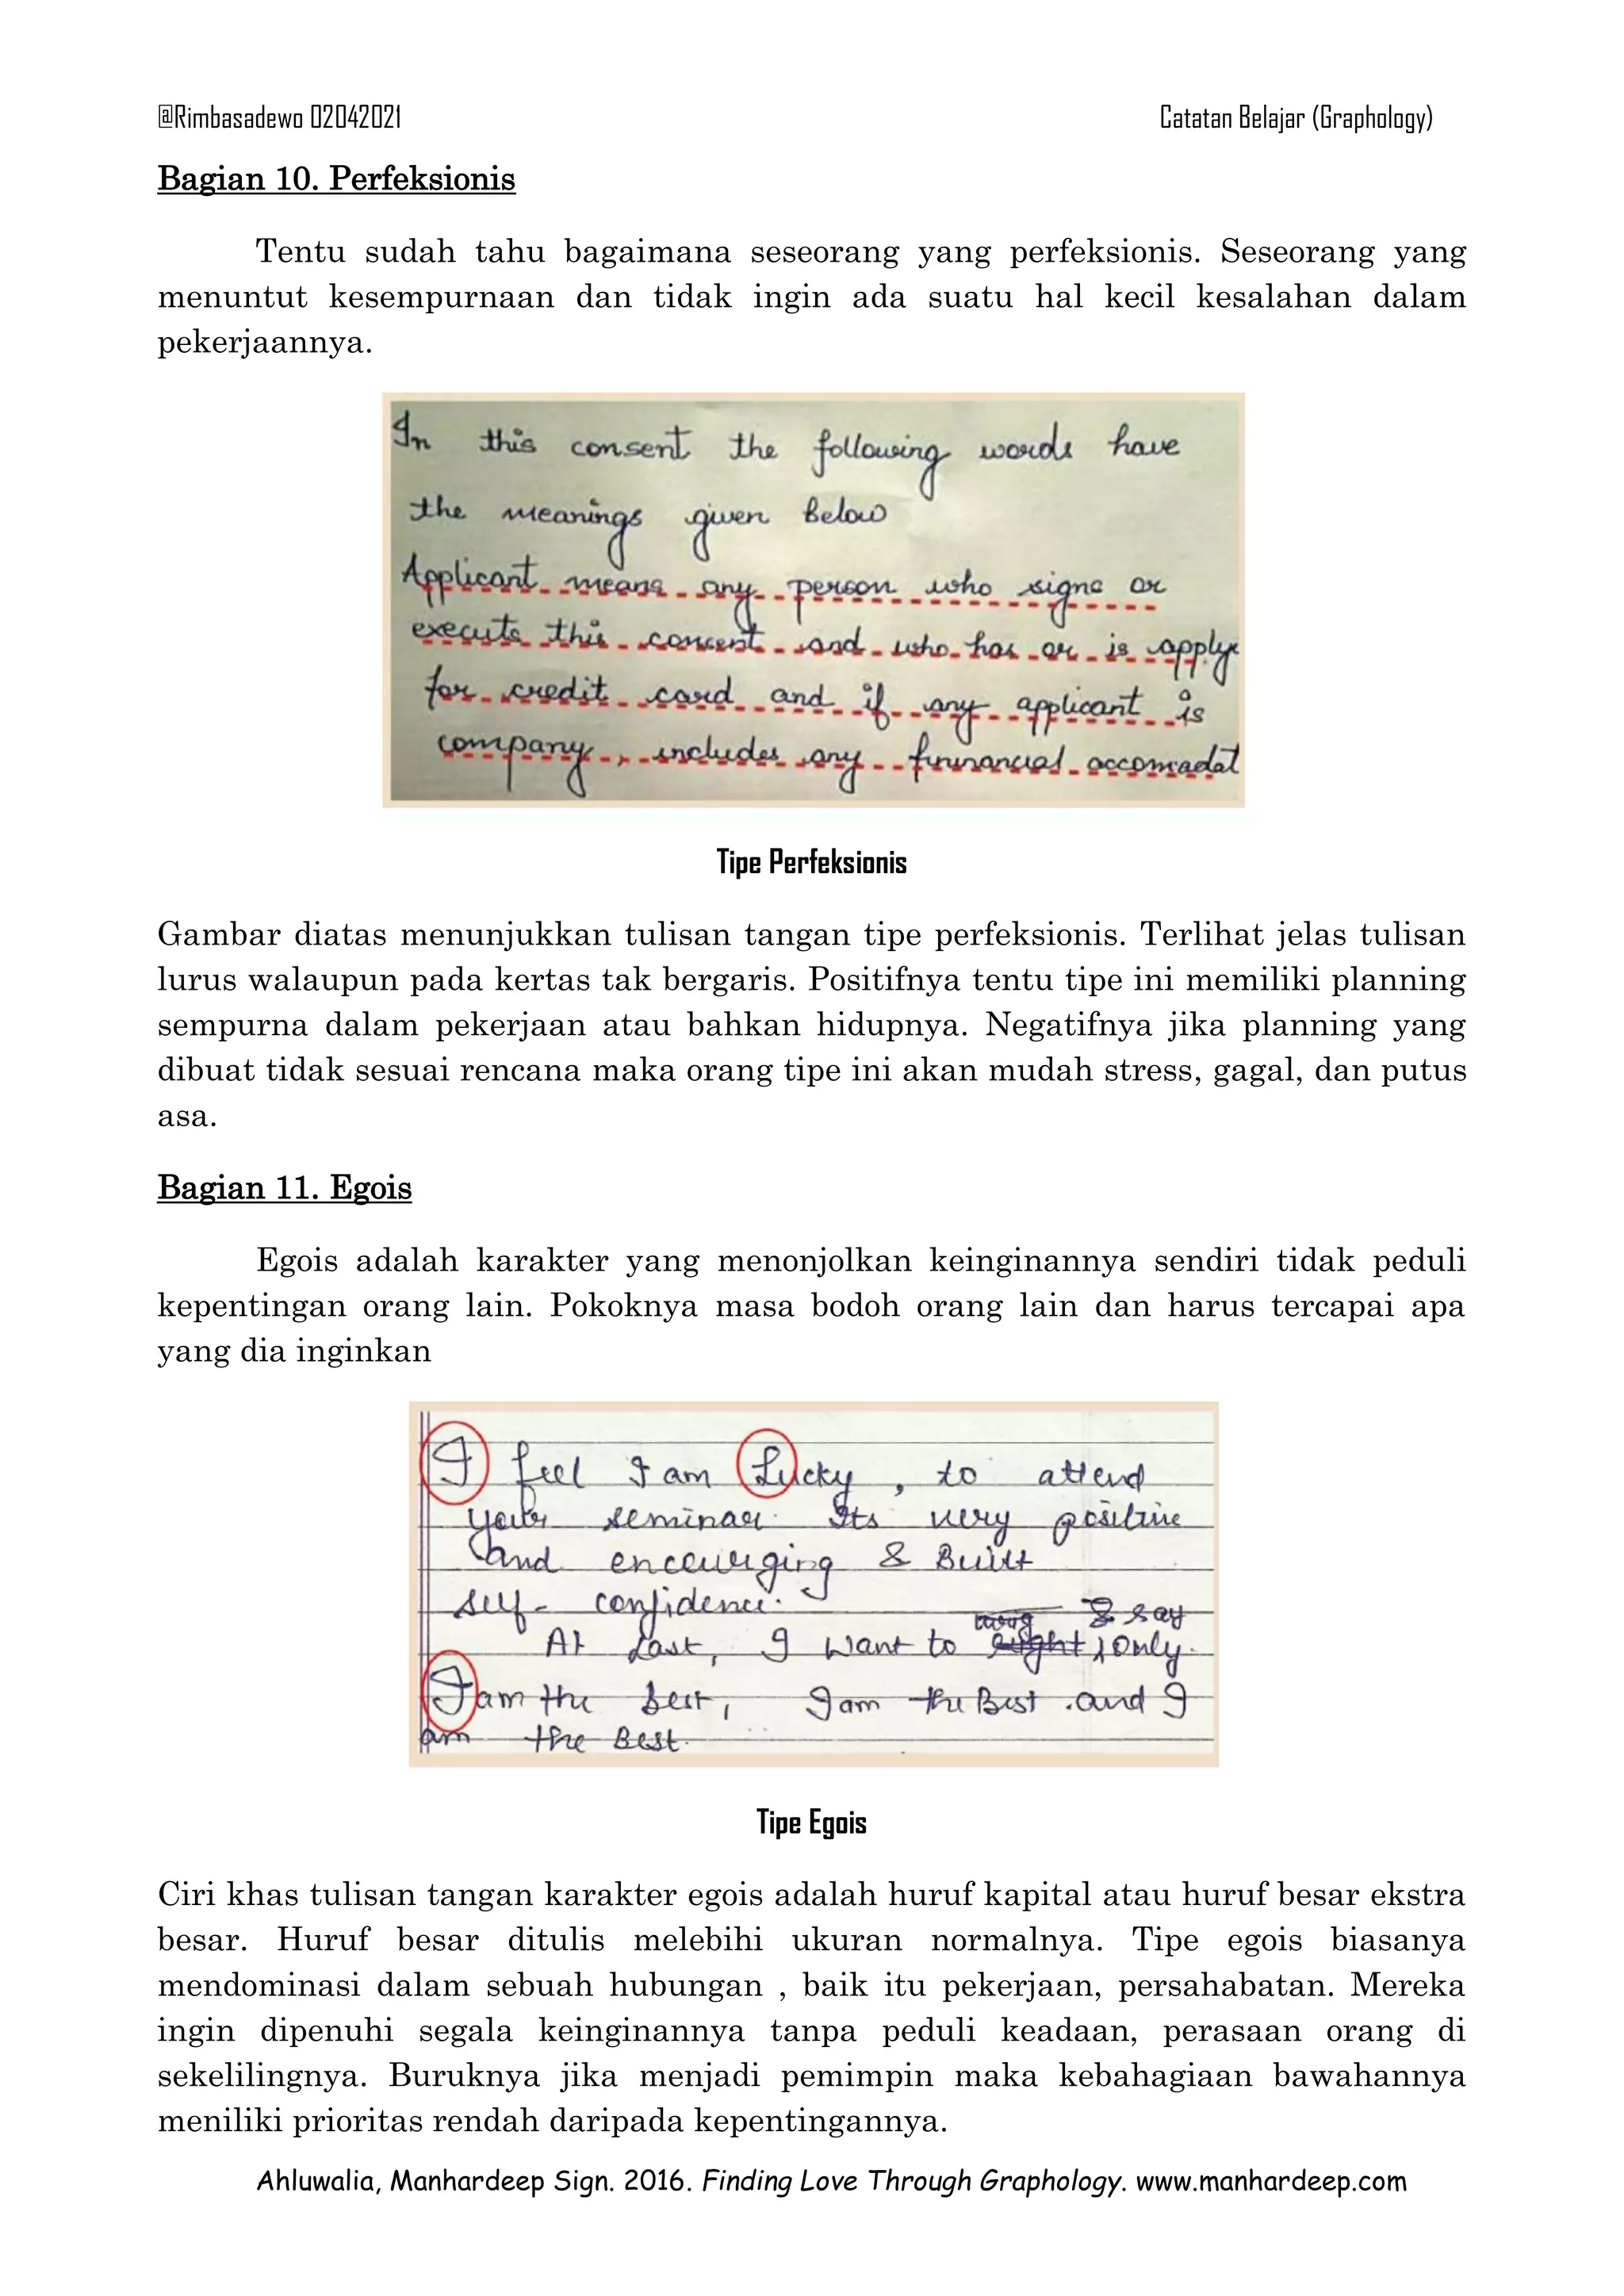 @Rimbasadewo 02042021 Catatan Belajar (Graphology)
Bagian 10. Perfeksionis
Tentu sudah tahu bagaimana seseorang yang perfeksionis. Seseorang yang
menuntut kesempurnaan dan tidak ingin ada suatu hal kecil kesalahan dalam
pekerjaannya.
In this consent the following words have
the meanings given below
Applicant means any person who signs or
execute this consent and who has or is apply
for credit card and if any applicant is
company, includes any fininancial accomadat
Tipe Perfeksionis
Gambar diatas menunjukkan tulisan tangan tipe perfeksionis. Terlihat jelas tulisan
lurus walaupun pada kertas tak bergaris. Positifnya tentu tipe ini memiliki planning
sempurna dalam pekerjaan atau bahkan hidupnya. Negatifnya jika planning yang
dibuat tidak sesuai rencana maka orang tipe ini akan mudah stress, gagal, dan putus
asa.
Bagian 11. Egois
Egois adalah karakter yang menonjolkan keinginannya sendiri tidak peduli
kepentingan orang lain. Pokoknya masa bodoh orang lain dan harus tercapai apa
yang dia inginkan
I feel I am Lucky, to attend
your seminar. Its very positive
and encouriging & Built
self- confidence.
At Last, I want to & say only.
I am the best, I am the Best .and I
am the Best.
Tipe Egois
Ciri khas tulisan tangan karakter egois adalah huruf kapital atau huruf besar ekstra
besar. Huruf besar ditulis melebihi ukuran normalnya. Tipe egois biasanya
mendominasi dalam sebuah hubungan , baik itu pekerjaan, persahabatan. Mereka
ingin dipenuhi segala keinginannya tanpa peduli keadaan, perasaan orang di
sekelilingnya. Buruknya jika menjadi pemimpin maka kebahagiaan bawahannya
meniliki prioritas rendah daripada kepentingannya.
Ahluwalia, Manhardeep Sign. 2016. Finding Love Through Graphology. www.manhardeep.com